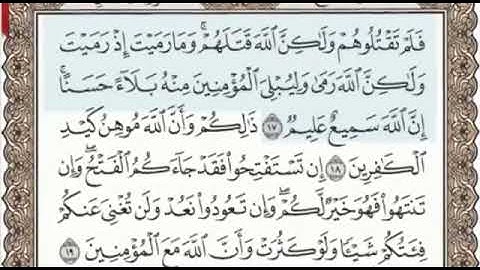 فَلَمْ تَقْتُلُوهُمْ وَلَٰكِنَّ ٱللَّهَ قَتَلَهُمْ ۚ وَمَا رَمَيْتَ إِذْ رَمَيْتَ
وَلَٰكِنَّ ٱللَّهَ رَمَىٰ ۚ وَلِيُبْلِىَ ٱلْمُؤْمِنِينَ مِنْهُ بَلَآءً حَسَنًا ۚ
إِنَّ ٱللَّهَ سَمِيعٌ عَلِيمٌ ١٧ ذَٰلِكُمْ وَأَنَّ ٱللَّهَ مُوهِنُ كَيْدِ
ٱلْكَٰفِرِينَ ١٨ إِن تَسْتَفْتِحُوا۟ فَقَدْ جَآءَكُمُ ٱلْفَتْحُ ۖ وَإِن
تَنتَهُوا۟ فَهُوَ خَيْرٌ لَّكُمْ ۖ وَإِن تَعُودُوا۟ نَعُدْ وَلَن تُغْنِىَ عَنكُمْ
فِئَتُكُمْ شَيْـًٔا وَلَوْ كَثُرَتْ وَأَنَّ ٱللَّهَ مَعَ ٱلْمُؤْمِنِينَ ١٩